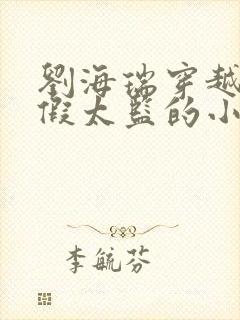 劉海瑞穿越
假太監的小
李毓芬